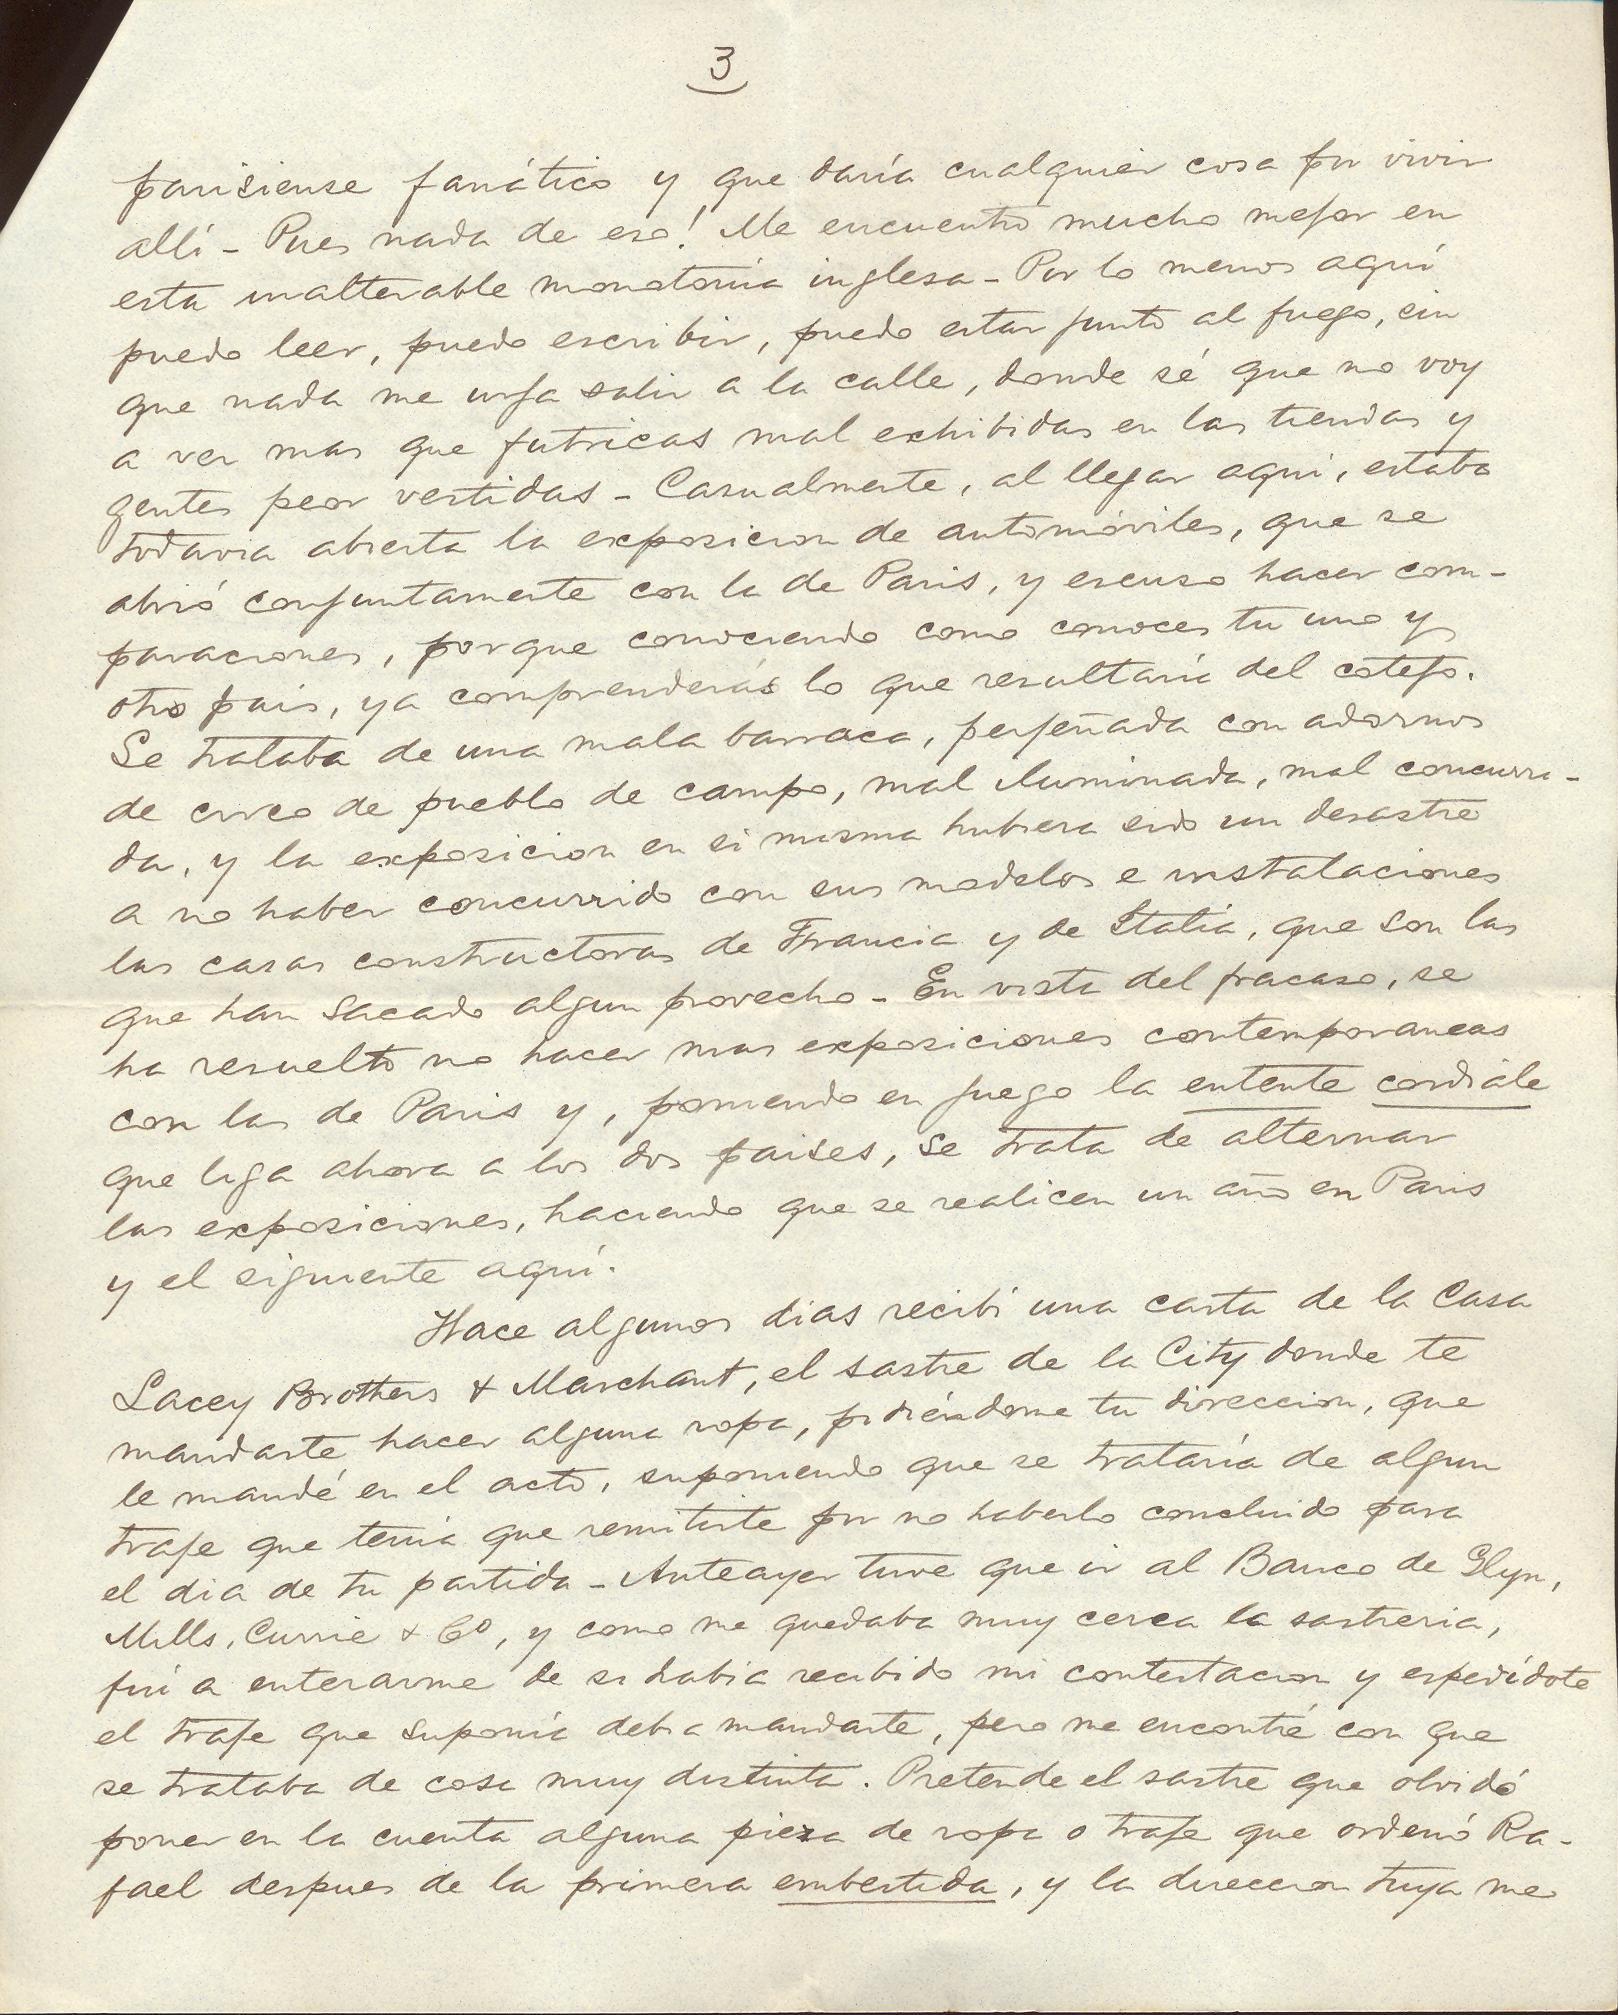 3
parisiense fanático y que daría cualquier cosa por vivir
allí - Pues nada de eso! Me encuentro mucho mejor en
esta inalterable monotonía inglesa - Por lo menos aquí
puedo leer, puedo escribir, puedo estar junto al fuego, sin
que nada me urja salir a la calle, donde sé que no voy
a ver mas que futricas mal exhibidas en las tiendas y
gentes peor vestidas - Casualmente, al llegar aqui, estaba
todavia abierta la exposicion de automóviles, que se
abrió conjuntamente con la de Paris, y escuso hacer com-
paraciones, porque conociendo como conoces tu uno y
otro pais, ya comprenderás lo que resultaría del cotejo.
Se trataba de una mala barraca, perjeñada con adornos
de circo de pueblo de campo, mal iluminada, mal concurri-
da, y la exposicion en si misma hubiera sido un desastre
a no haber concurrido con sus modelos e instalaciones
las casas constructoras de Francia y de Italia, que son las
que han sacado algun provecho - En vista del fracaso, se
ha resuelto no hacer mas exposiciones contemporaneas
con las de Paris y, poniendo en juego la entente cordiale
que liga ahora a los dos paises, se trata de alternar
las exposiciones, haciendo que se realicen un año en Paris
y el siguiente aquí.
Hace algunos dias recibi una carta de la Casa
Lacey Brothers & Marchant, el sastre de la City donde te
mandaste hacer alguna ropa, pidiéndome tu direccion, que
le mandé en el acto, suponiendo que se trataría de algun
traje que tenia que remitirte por no haberlo concluido para
el dia de tu partida - Anteayer tuve que ir al Banco de Glyn,
Mills, Currie & Co, y como me quedaba muy cerca la sastreria,
fui a enterarme de si habia recibido mi contestacion y espedídote
el traje que suponía debia mandarte, pero me encontré con que
se trataba de cosa muy distinta. Pretende el sastre que olvidó
poner en la cuenta alguna pieza de ropa o traje que ordenó Ra-
fael despues de la primera embestida, y la direccion tuya me